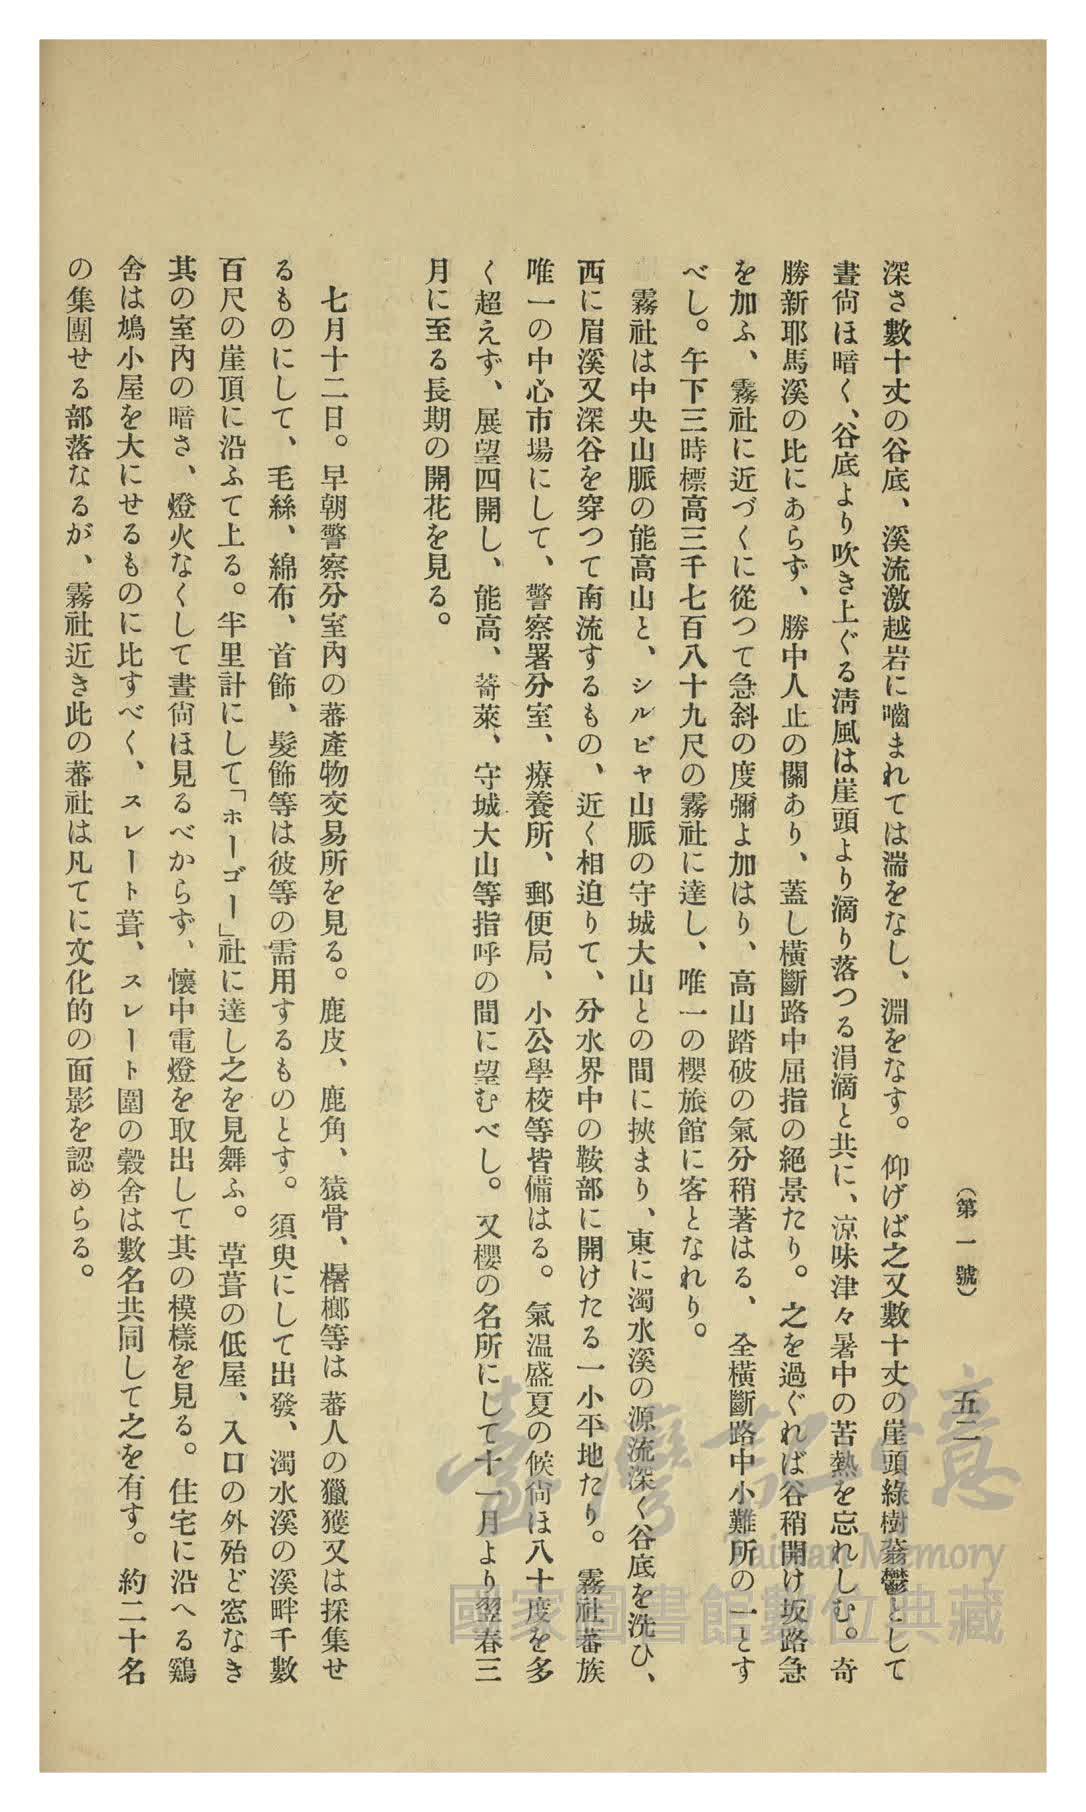 （第一號）　五二
深さ數十丈の谷底、溪流激越岩に嚙まれては湍をなし、淵をなす。仰げば之又數十丈の崖頭綠樹蓊鬱として
晝尙ほ暗く、谷底より吹き上ぐる淸風は崖頭より滴り落つる涓滴と共に、涼味津々暑中の苦熱を忘れしむ。奇
勝新耶馬溪の比にあらず、勝中人止の關あり、蓋し橫斷路中屈指の絕景たり。之を過ぐれば谷稍開け坂路急
を加ふ、霧社に近づくに從つて急斜の度彌よ加はり、高山踏破の氣分稍著はる、全橫斷路中小難所の一とす
べし。午下三時標高三千七百八十九尺の霧社に達し、唯一の櫻旅館に客となれり。
霧社は中央山脈の能高山と、シルビヤ山脈の守城大山との間に挾まり、東に濁水溪の源流深く谷底を洗ひ、
西に眉溪又深谷を穿つて南流するもの、近く相迫りて、分水界中の鞍部に開けたる一小平地たり。霧社蕃族
唯一の中心市場にして、警察署分室、療養所、郵便局、小公學校等皆備はる。氣溫盛夏の候尙ほ八十度を多
く超えず、展望四開し、能高、萮萊、守城大山等指呼の間に望むべし。又櫻の名所にして十一月より翌春三
月に至る長期の開花を見る。
七月十二日。早朝警察分室內の蕃產物交易所を見る。鹿皮、鹿角、猿骨、榙榔等は蕃人の獵獲又は採集せ
るものにして、毛絲、綿布、首飾、髮飾等は彼等の需用するものとす。須臾にして出發、濁水溪の溪畔千數
百尺の崖頂に沿ふて上る。半里計にして「ホーゴー」社に達し之を見舞ふ。草葺の低屋、入口の外殆ど窓なき
其の室內の暗さ、燈火なくして晝尙ほ見るべからず、懷中電燈を取出して其の模樣を見る。住宅に沿へる鷄
舍は鳩小屋を大にせるものに比すべく、スレート葺、スレート圍の穀舍は數名共同して之を有す。約二十名
の集團せる部落なるが、霧社近き此の蕃社は凡てに文化的の面影を認めらる。
臺灣記憶
Taiwan Memory
國家圖書館數位典藏